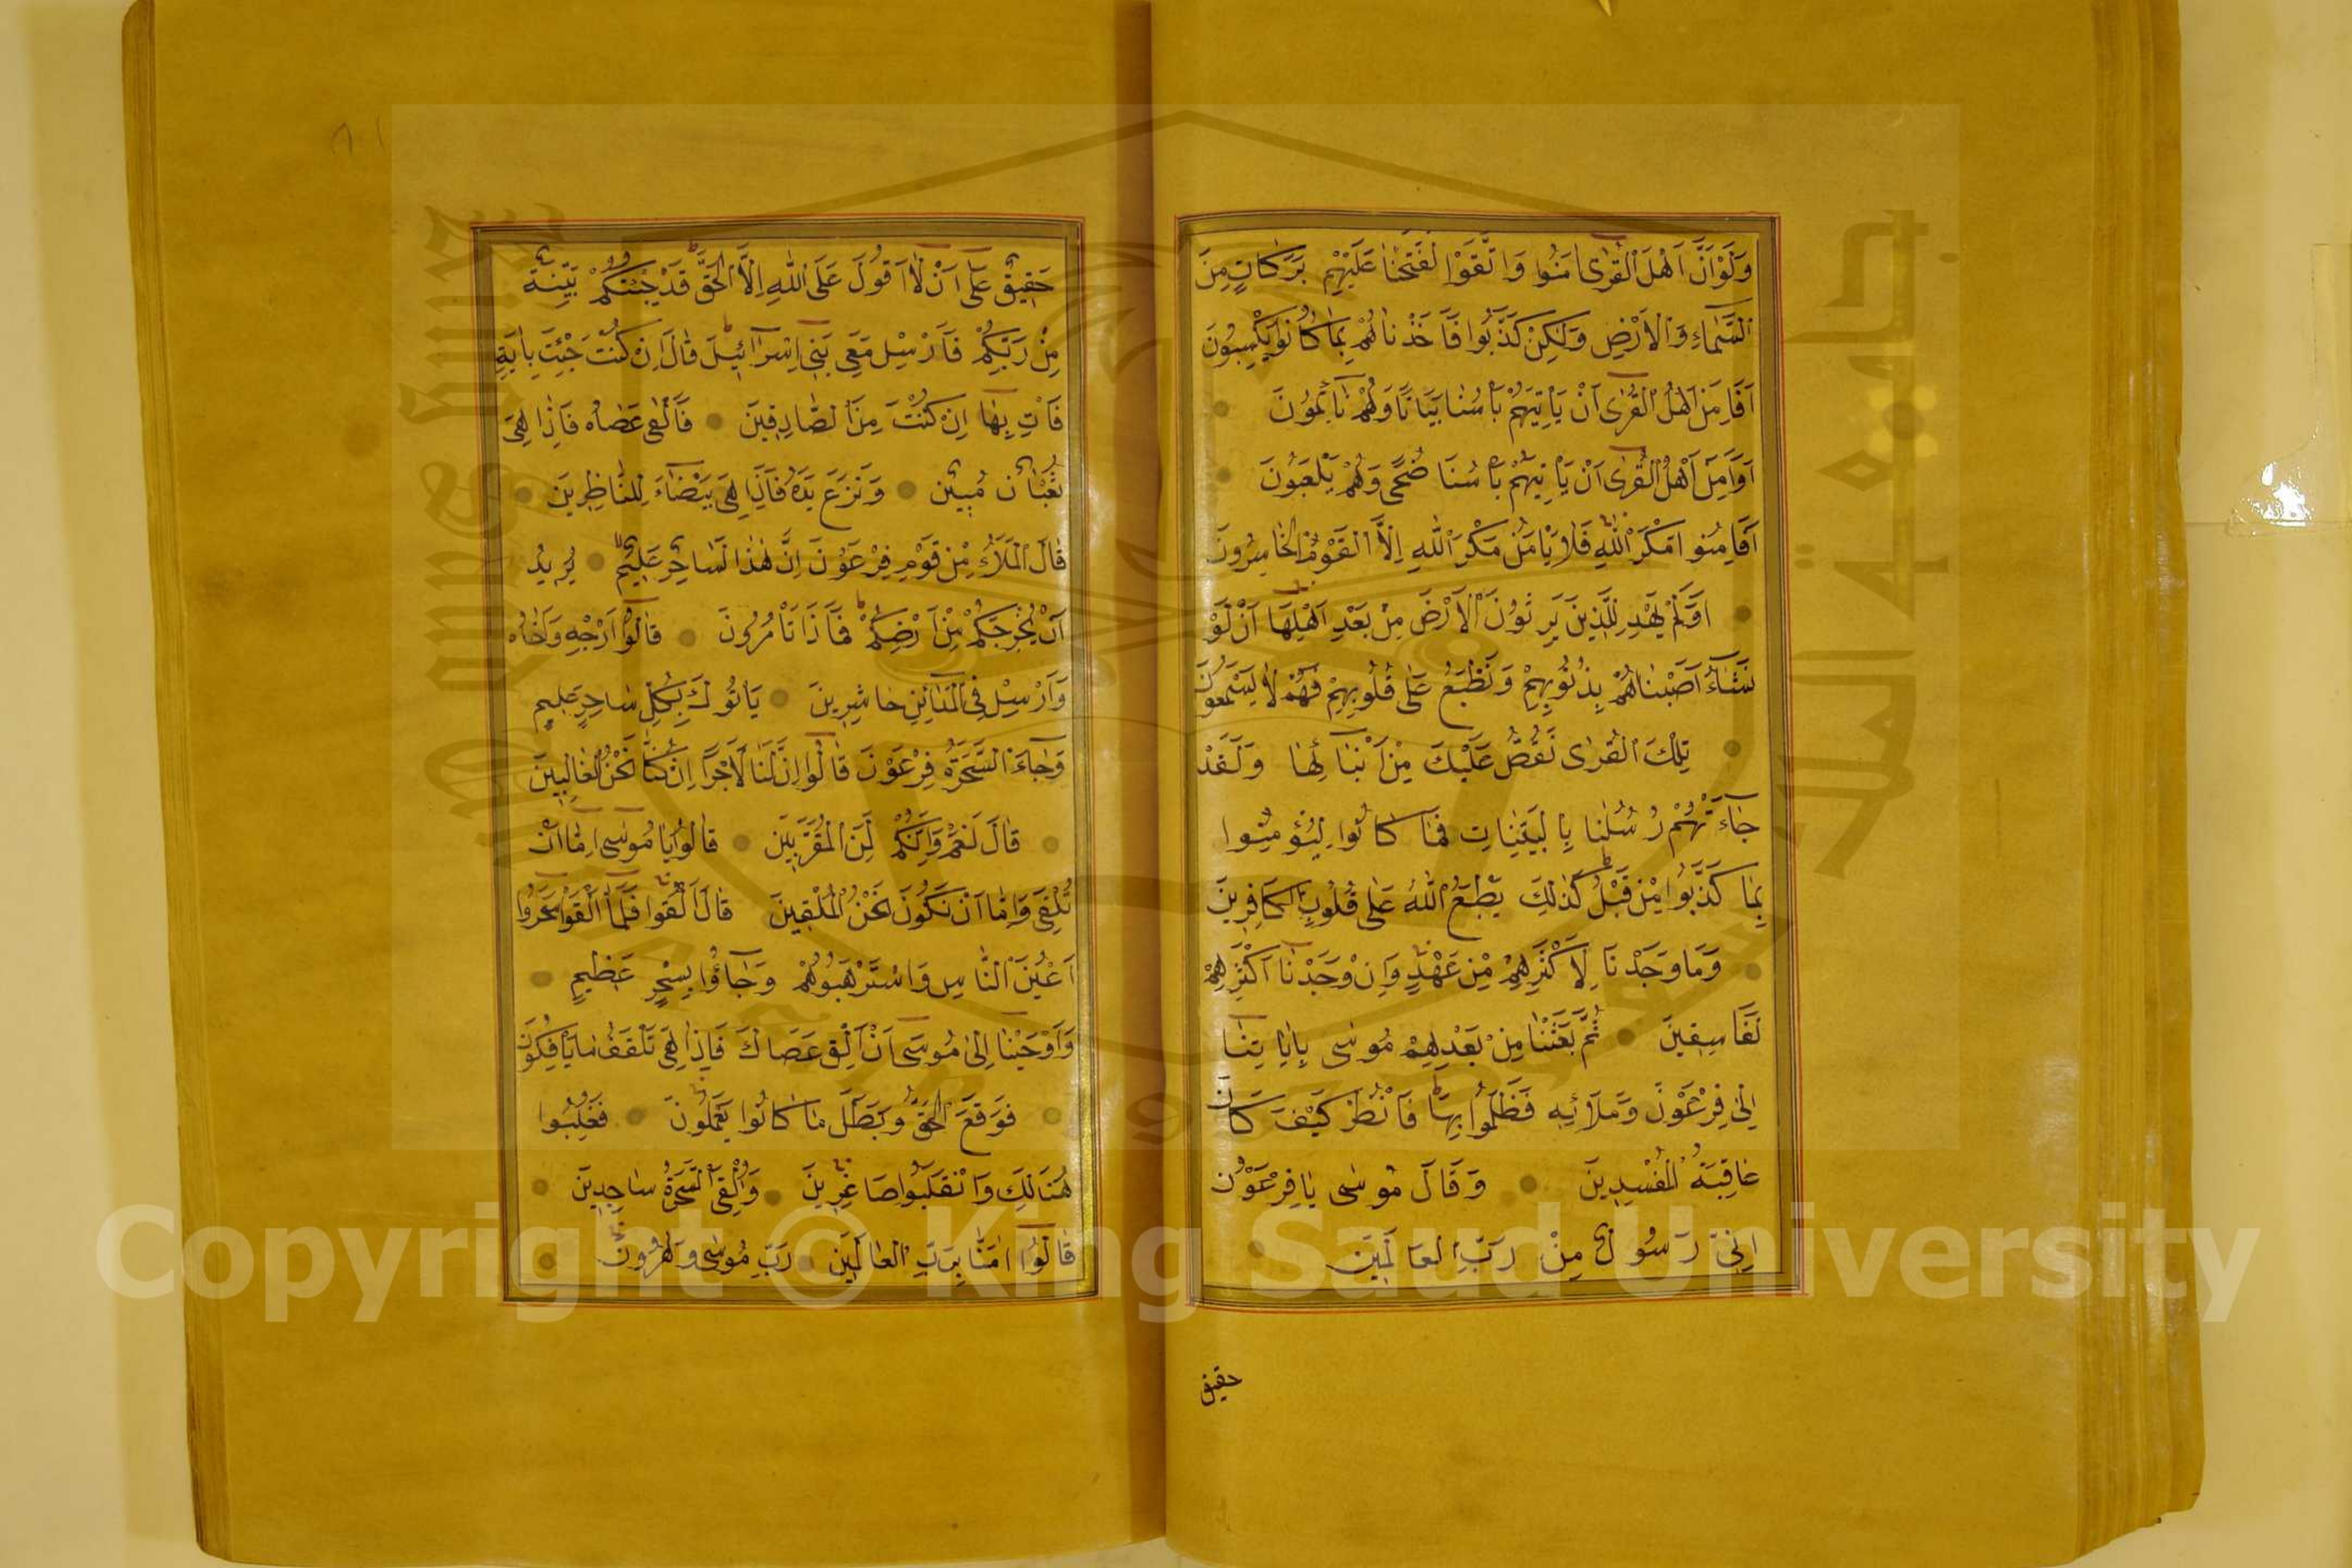 وَلَوْ اَنَّ اَهْلَ الْقُرٰى اٰمَنُوا وَاتَّقَوْا لَفَتَحْنَا عَلَيْهِمْ بَرَكَاتٍ مِنَ
السَّمَاءِ وَالْاَرْضِ وَلٰكِنْ كَذَّبُوا فَاَخَذْنَاهُمْ بِمَا كَانُوا يَكْسِبُونَ
اَفَاَمِنَ اَهْلُ الْقُرٰى اَنْ يَاْتِيَهُمْ بَاْسُنَا بَيَاتًا وَهُمْ نَائِمُونَ
اَوَاَمِنَ اَهْلُ الْقُرٰى اَنْ يَاْتِيَهُمْ بَاْسُنَا ضُحًى وَهُمْ يَلْعَبُونَ
اَفَاَمِنُوا مَكْرَ اللّٰهِ فَلَا يَاْمَنُ مَكْرَ اللّٰهِ اِلَّا الْقَوْمُ الْخَاسِرُونَ
اَوَلَمْ يَهْدِ لِلَّذِينَ يَرِثُونَ الْاَرْضَ مِنْ بَعْدِ اَهْلِهَا اَنْ لَوْ
نَشَاءُ اَصَبْنَاهُمْ بِذُنُوبِهِمْ وَنَطْبَعُ عَلٰى قُلُوبِهِمْ فَهُمْ لَا يَسْمَعُونَ
تِلْكَ الْقُرٰى نَقُصُّ عَلَيْكَ مِنْ اَنْبَائِهَا وَلَقَدْ
جَاءَتْهُمْ رُسُلُنَا بِالْبَيِّنَاتِ فَمَا كَانُوا لِيُؤْمِنُوا
بِمَا كَذَّبُوا مِنْ قَبْلُ كَذٰلِكَ يَطْبَعُ اللّٰهُ عَلٰى قُلُوبِ الْكَافِرِينَ
وَمَا وَجَدْنَا لِاَكْثَرِهِمْ مِنْ عَهْدٍ وَاِنْ وَجَدْنَا اَكْثَرَهُمْ
لَفَاسِقِينَ ثُمَّ بَعَثْنَا مِنْ بَعْدِهِمْ مُوسٰى بِاٰيَاتِنَا
اِلٰى فِرْعَوْنَ وَمَلَائِهِ فَظَلَمُوا بِهَا فَانْظُرْ كَيْفَ كَانَ
عَاقِبَةُ الْمُفْسِدِينَ وَقَالَ مُوسٰى يَا فِرْعَوْنُ
اِنِّي رَسُولٌ مِنْ رَبِّ الْعَالَمِينَ
حقيق
حَقِيقٌ عَلٰى اَنْ لَا اَقُولَ عَلَى اللّٰهِ اِلَّا الْحَقَّ قَدْ جِئْتُكُمْ بِبَيِّنَةٍ
مِنْ رَبِّكُمْ فَاَرْسِلْ مَعِيَ بَنِي اِسْرَائِيلَ قَالَ اِنْ كُنْتَ جِئْتَ بِاٰيَةٍ
فَاْتِ بِهَا اِنْ كُنْتَ مِنَ الصَّادِقِينَ فَاَلْقٰى عَصَاهُ فَاِذَا هِيَ
ثُعْبَانٌ مُبِينٌ وَنَزَعَ يَدَهُ فَاِذَا هِيَ بَيْضَاءُ لِلنَّاظِرِينَ
قَالَ الْمَلَاُ مِنْ قَوْمِ فِرْعَوْنَ اِنَّ هٰذَا لَسَاحِرٌ عَلِيمٌ يُرِيدُ
اَنْ يُخْرِجَكُمْ مِنْ اَرْضِكُمْ فَمَاذَا تَاْمُرُونَ قَالُوا اَرْجِهْ وَاَخَاهُ
وَاَرْسِلْ فِي الْمَدَائِنِ حَاشِرِينَ يَاْتُوكَ بِكُلِّ سَاحِرٍ عَلِيمٍ
وَجَاءَ السَّحَرَةُ فِرْعَوْنَ قَالُوا اِنَّ لَنَا لَاَجْرًا اِنْ كُنَّا نَحْنُ الْغَالِبِينَ
قَالَ نَعَمْ وَاِنَّكُمْ لَمِنَ الْمُقَرَّبِينَ قَالُوا يَا مُوسٰى اِمَّا اَنْ
تُلْقِيَ وَاِمَّا اَنْ نَكُونَ نَحْنُ الْمُلْقِينَ قَالَ اَلْقُوا فَلَمَّا اَلْقَوْا سَحَرُوا
اَعْيُنَ النَّاسِ وَاسْتَرْهَبُوهُمْ وَجَاؤُا بِسِحْرٍ عَظِيمٍ
وَاَوْحَيْنَا اِلٰى مُوسٰى اَنْ اَلْقِ عَصَاكَ فَاِذَا هِيَ تَلْقَفُ مَا يَاْفِكُونَ
فَوَقَعَ الْحَقُّ وَبَطَلَ مَا كَانُوا يَعْمَلُونَ فَغُلِبُوا
هُنَالِكَ وَانْقَلَبُوا صَاغِرِينَ وَاُلْقِيَ السَّحَرَةُ سَاجِدِينَ
قَالُوا اٰمَنَّا بِرَبِّ الْعَالَمِينَ رَبِّ مُوسٰى وَهٰرُونَ
Copyright © King Saud University